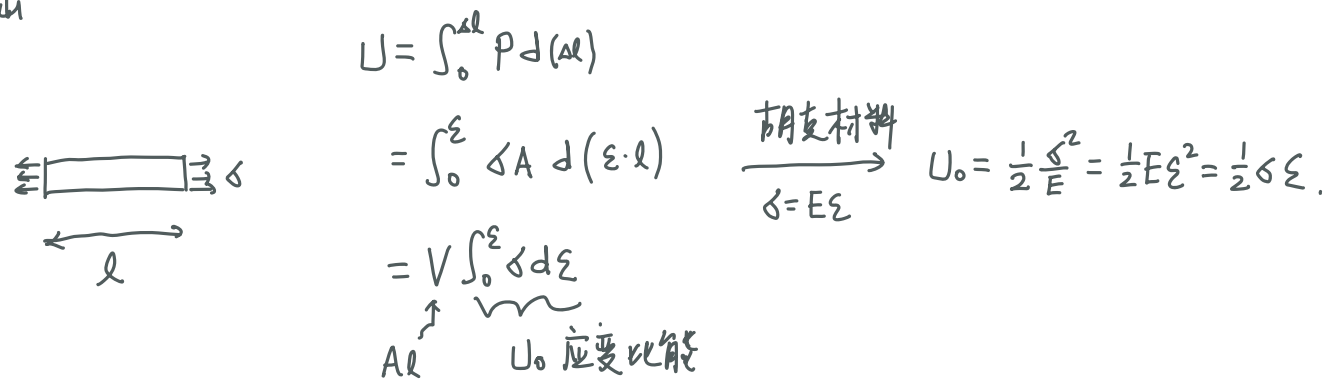 U = ∫₀^Δl P d(Δl)
= ∫₀^ε σA d(ε·l)
= V ∫₀^ε σdε
Al
U₀ 应变比能
σ
l
胡克材料
σ=Eε
U₀ = 1/2 σ²/E = 1/2 Eε² = 1/2 σ ε .